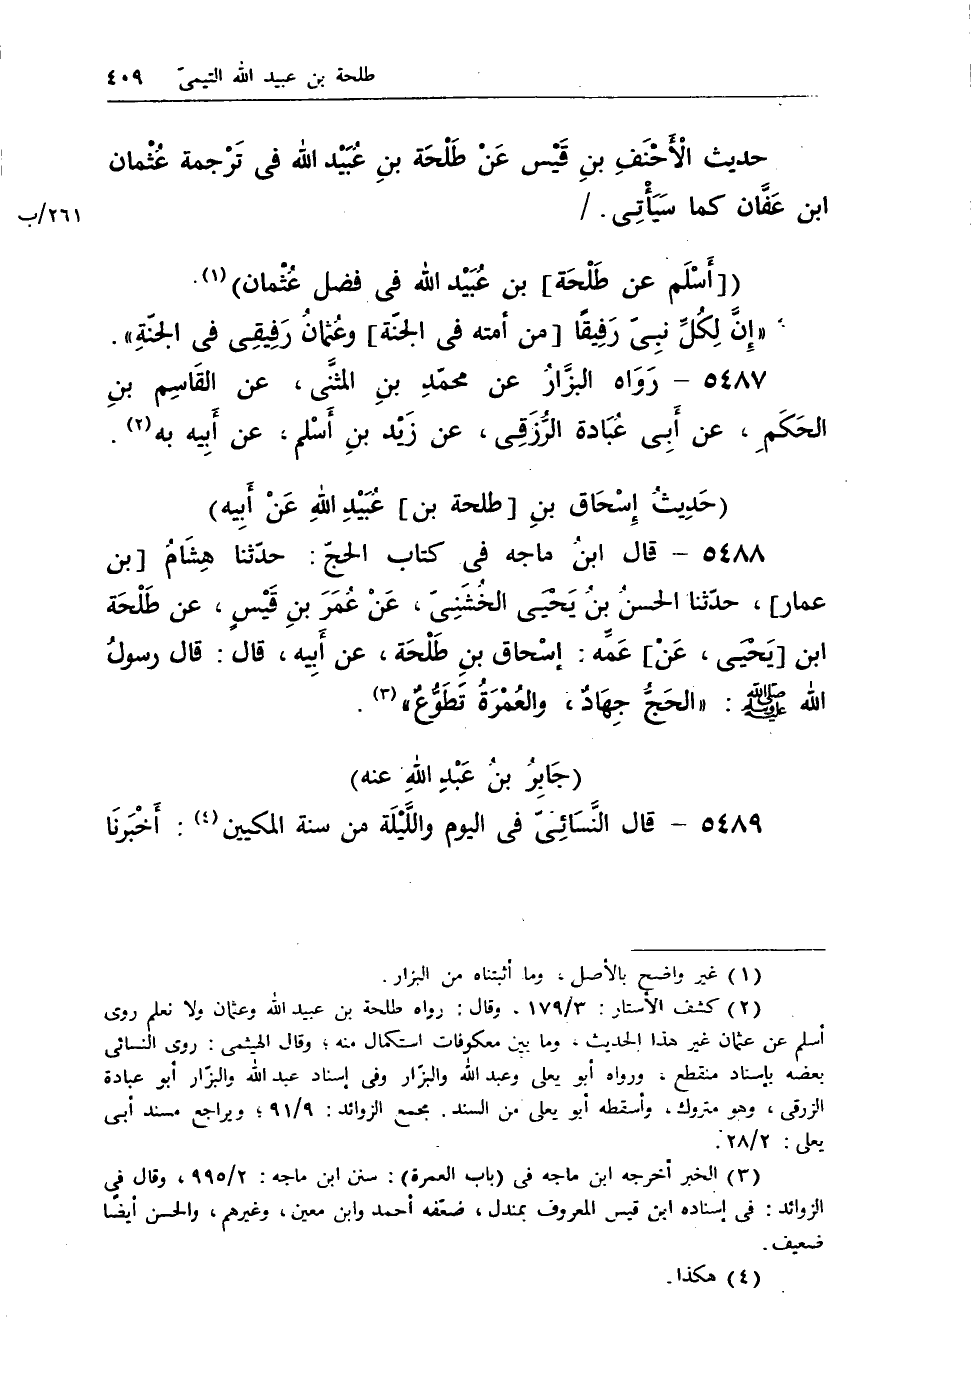 طلحة بن عبيد الله التيمىّ ٤٠٩
حديث الْأَحْنَفِ بنِ قَيْس عَنْ طَلْحَة بنِ عُبَيْد الله فى تَرْجمة عُثْمان
ابن عَفَّان كما سَيَأْتِى . /
٢٦١/ب
([أَسْلَم عن طَلْحَة] بن عُبَيْد الله فى فضل عُثْمان)(١).
«إِنَّ لِكُلِّ نبِىّ رَفِيقًا [من أمته فى الجنّة] وعُثْمانُ رَفِيقِى فى الجنّةِ» .
٥٤٨٧ – رَوَاه البزَّارُ عن محمّدِ بنِ المثنَّى ، عن القَاسِم بنِ
الحَكَمِ ، عن أَبِى عُبَادة الزُّرَقِى ، عن زَيْد بنِ أَسْلم ، عن أَبِيه به(٢) .
(حَدِيثُ إِسْحَاق بنِ [طلحة بن] عُبَيْدِ اللهِ عَنْ أَبِيه)
٥٤٨٨ – قال ابنُ ماجه فى كتاب الحجّ : حدّثنا هِشَامُ [بن
عمار] ، حدّثنا الحسنُ بنُ يَحْيَى الخُشَنِىّ ، عَنْ عُمَرَ بنِ قَيْسٍ ، عن طَلْحَة
ابن [يَحْيَى ، عَنْ] عَمِّه : إسْحاق بنِ طَلْحَة ، عن أَبِيه ، قال : قال رسولُ
الله ﷺ : «الحَجُّ جِهَادٌ ، والعُمْرَةُ تَطَوُّعٌ»(٣) .
(جَابِرُ بنُ عَبْدِ اللهِ عنه)
٥٤٨٩ – قال النَّسَائِىّ فى اليوم واللَّيْلَة من سنة المكيين(٤) : أَخْبَرَنَا
(١) غير واضح بالأصل ، وما أثبتناه من البزار .
(٢) كشف الأستار : ١٧٩/٣ . وقال : رواه طلحة بن عبيد الله وعثمان ولا نعلم روى
أسلم عن عثمان غير هذا الحديث ، وما بين معكوفات استكمال منه ؛ وقال الهيثمى : روى النسائى
بعضه بإسناد منقطع ، ورواه أبو يعلى وعبد الله والبزّار وفى إسناد عبد الله والبزّار أبو عبادة
الزرقى ، وهو متروك ، وأسقطه أبو يعلى من السند . مجمع الزوائد : ٩١/٩ ؛ ويراجع مسند أبى
يعلى : ٢٨/٢ .
(٣) الخبر أخرجه ابن ماجه فى (باب العمرة) : سنن ابن ماجه : ٩٩٥/٢ ، وقال فى
الزوائد : فى إسناده ابن قيس المعروف بمندل ، ضعّفه أحمد وابن معين ، وغيرهم ، والحسن أيضًا
ضعيف .
(٤) هكذا .